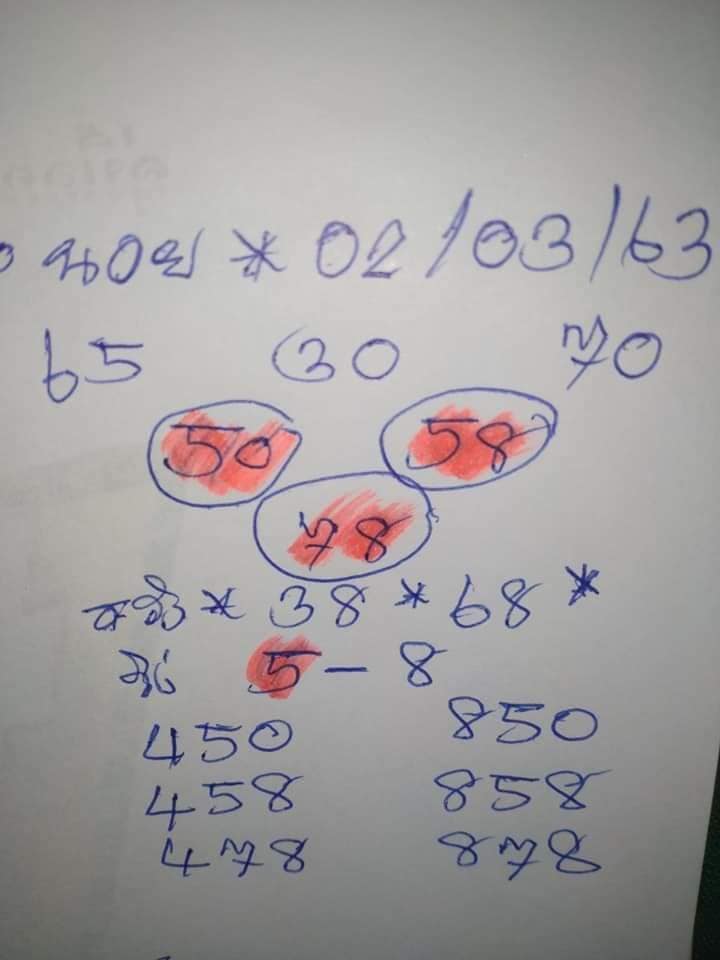 ฆอย * 02/03/63
65 30 70
50 58
78
* 38 * 68 *
5 - 8
450 850
458 858
478 878